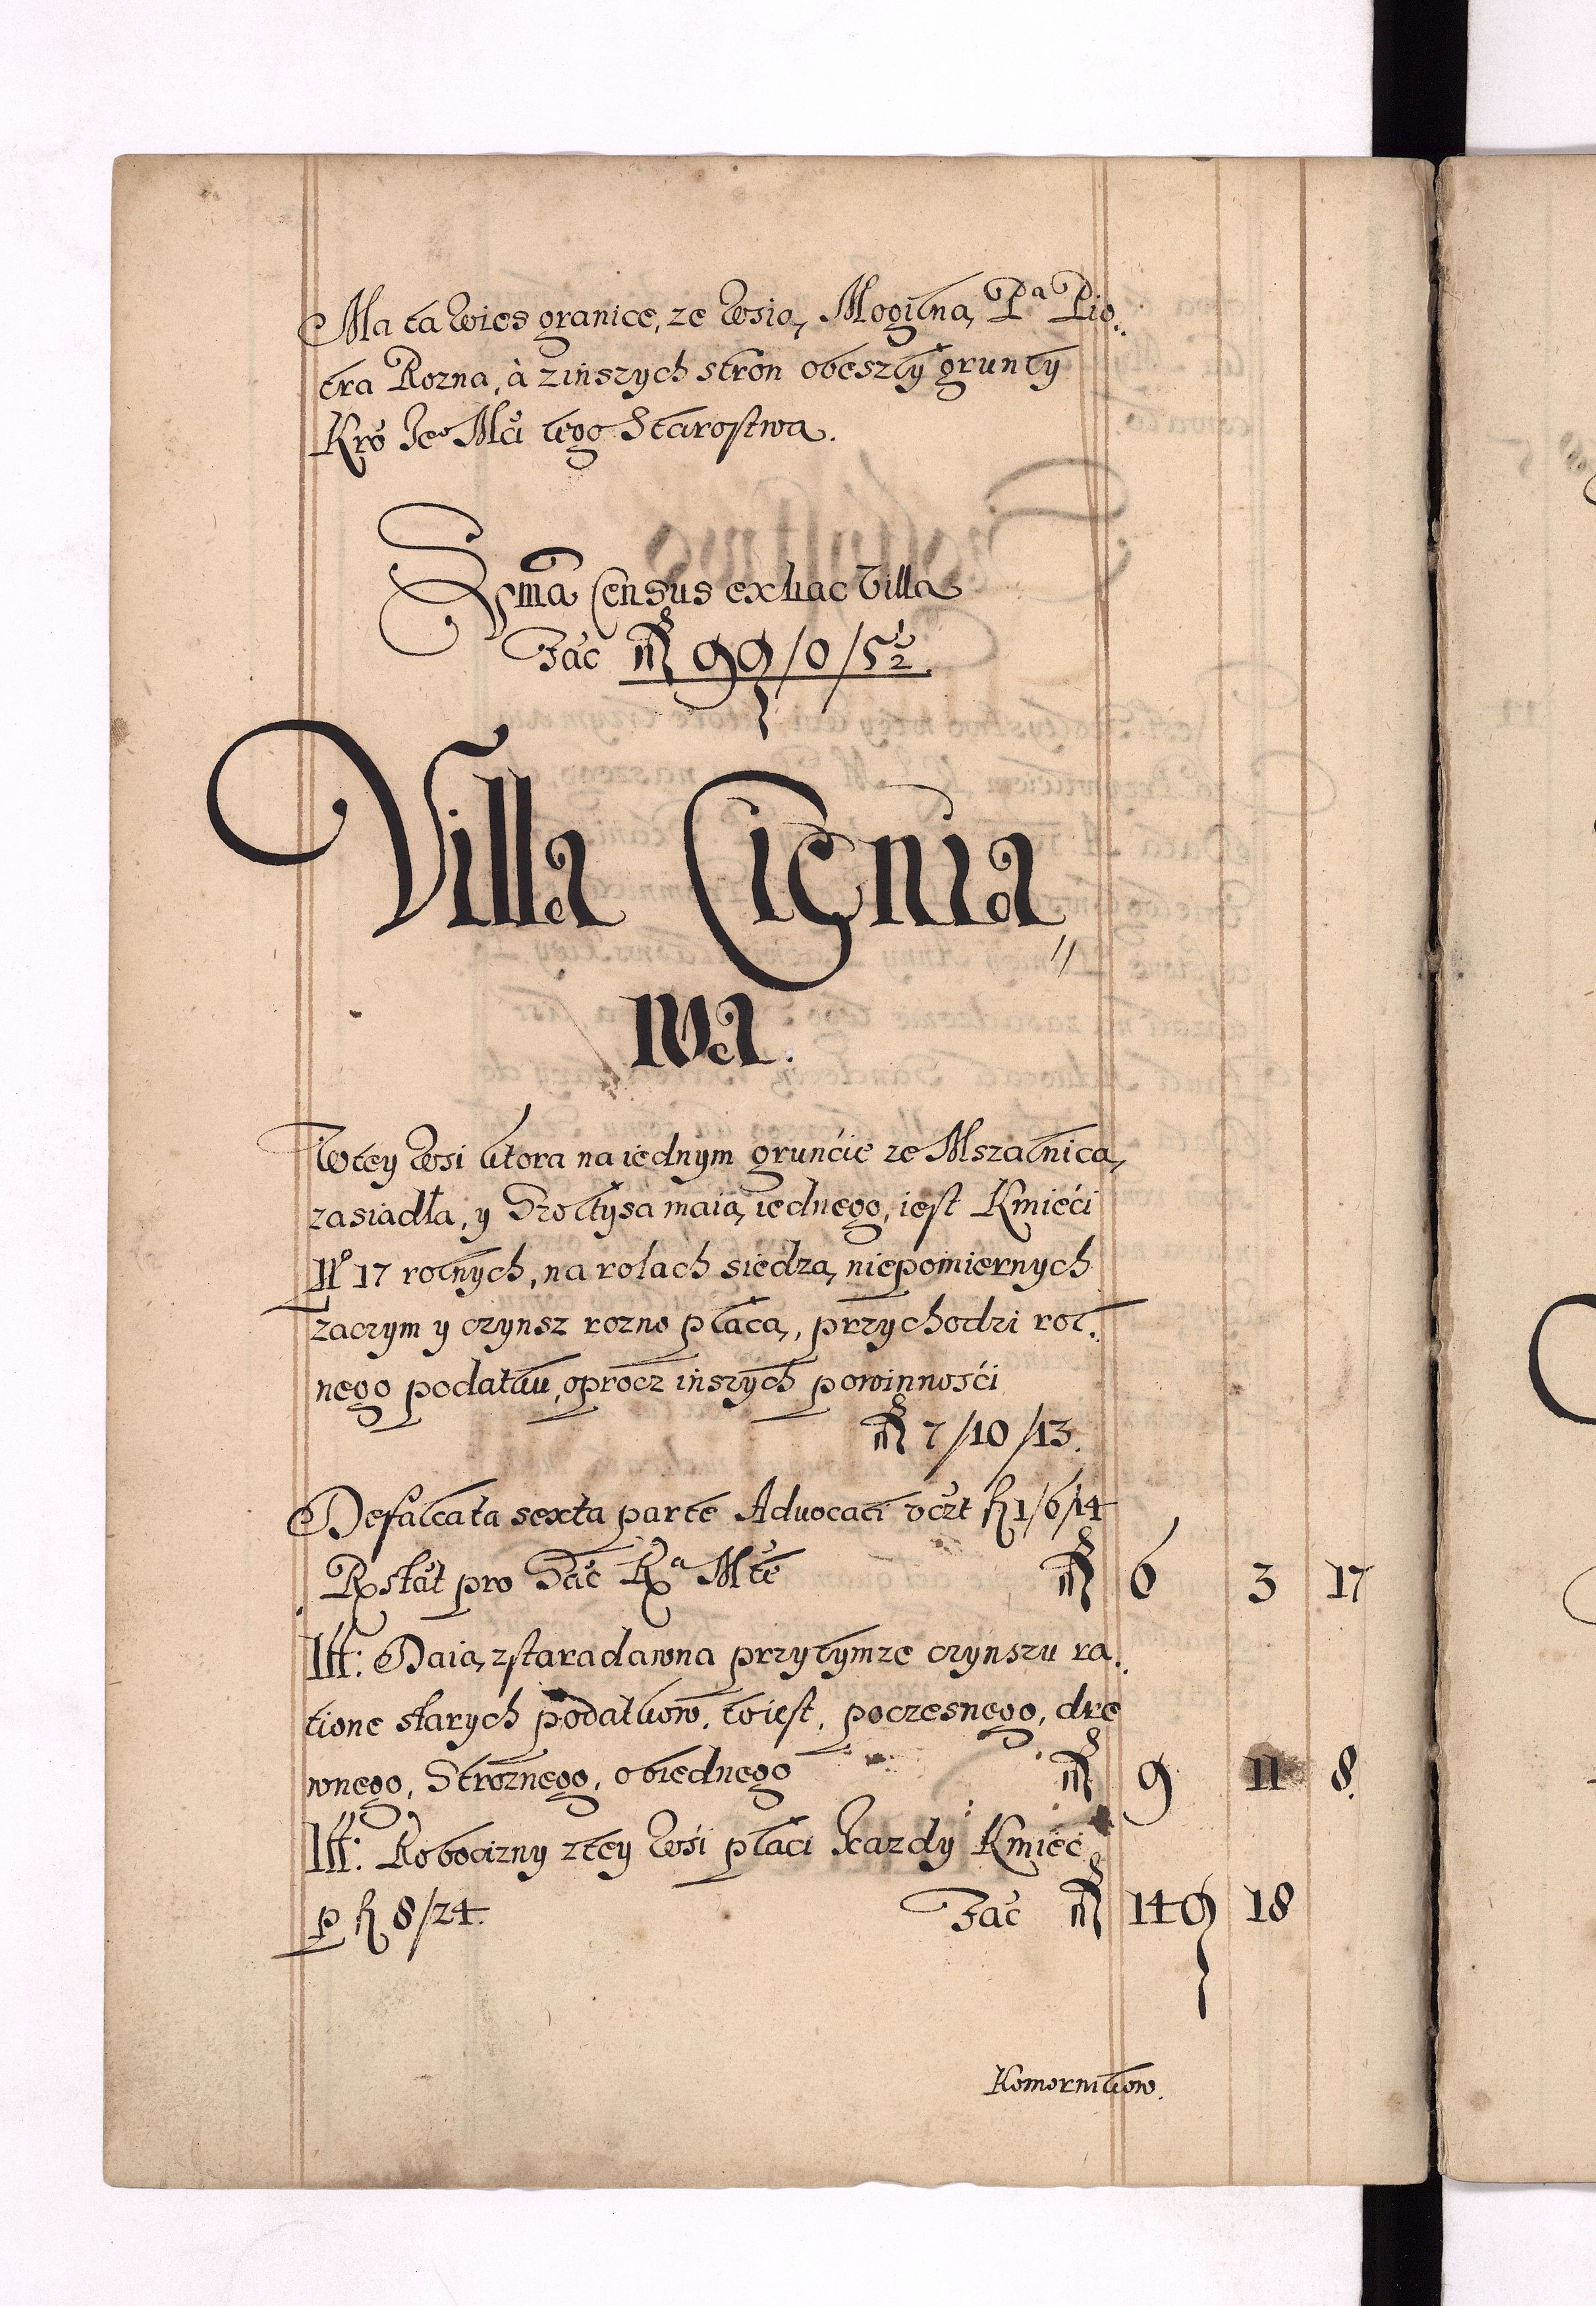 Ma ta wies granice, ze wsią Mogilną Pª Pio.
tra Rozna, à zinszych stron obeszły grunty
Kro Jeº Mći tego Starostwa.
Sūma Census ex hac Villa
Fac 99/0/5½.
Villa Cięnia//
wa.
W tey wsi ktora na iednym grunćie ze Mszalnicą
zasiadła, y Szołtysa maią iednego, iest Kmieći
Nº 17 rolnych, na rolach siedzą niepomiernych
zaczym y czynsz rozno płacą, przychodzi rol.
nego podatku, oprocz inszych powinnośći
7/10/13.
Defalcata sexta parte Advocati vczt 1/6/14
Rstat pro Sac Rª Mte 6 3 17
Itt: Daią zstaradawna przytymze czynszu ra.
tione starych podatkow, to iest, poczesnego, dre
wnego, Stroznego, obiednego 9 11 8.
Itt: Robocizny ztey wśi płaci kazdy Kmieć
p 8/24. Fac 149 18
Komornikow.